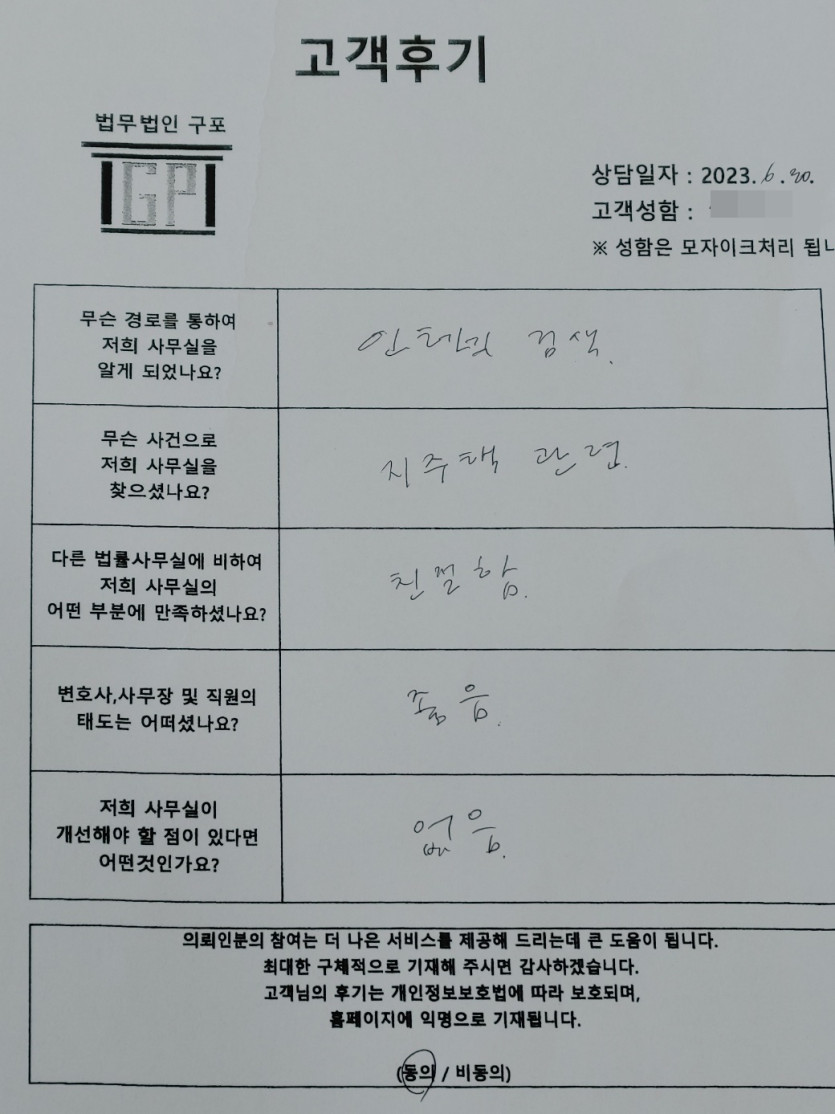 고객후기
법무법인 구포
GP
상담일자 : 2023. 6. 20.
고객성함 :
※ 성함은 모자이크처리 됩니
무슨 경로를 통하여
저희 사무실을
알게 되었나요?
인터넷 검색.
무슨 사건으로
저희 사무실을
찾으셨나요?
지주택 관련.
다른 법률사무실에 비하여
저희 사무실의
어떤 부분에 만족하셨나요?
친절함.
변호사,사무장 및 직원의
태도는 어떠셨나요?
좋음.
저희 사무실이
개선해야 할 점이 있다면
어떤것인가요?
없음.
의뢰인분의 참여는 더 나은 서비스를 제공해 드리는데 큰 도움이 됩니다.
최대한 구체적으로 기재해 주시면 감사하겠습니다.
고객님의 후기는 개인정보보호법에 따라 보호되며,
홈페이지에 익명으로 기재됩니다.
(동의 / 비동의)